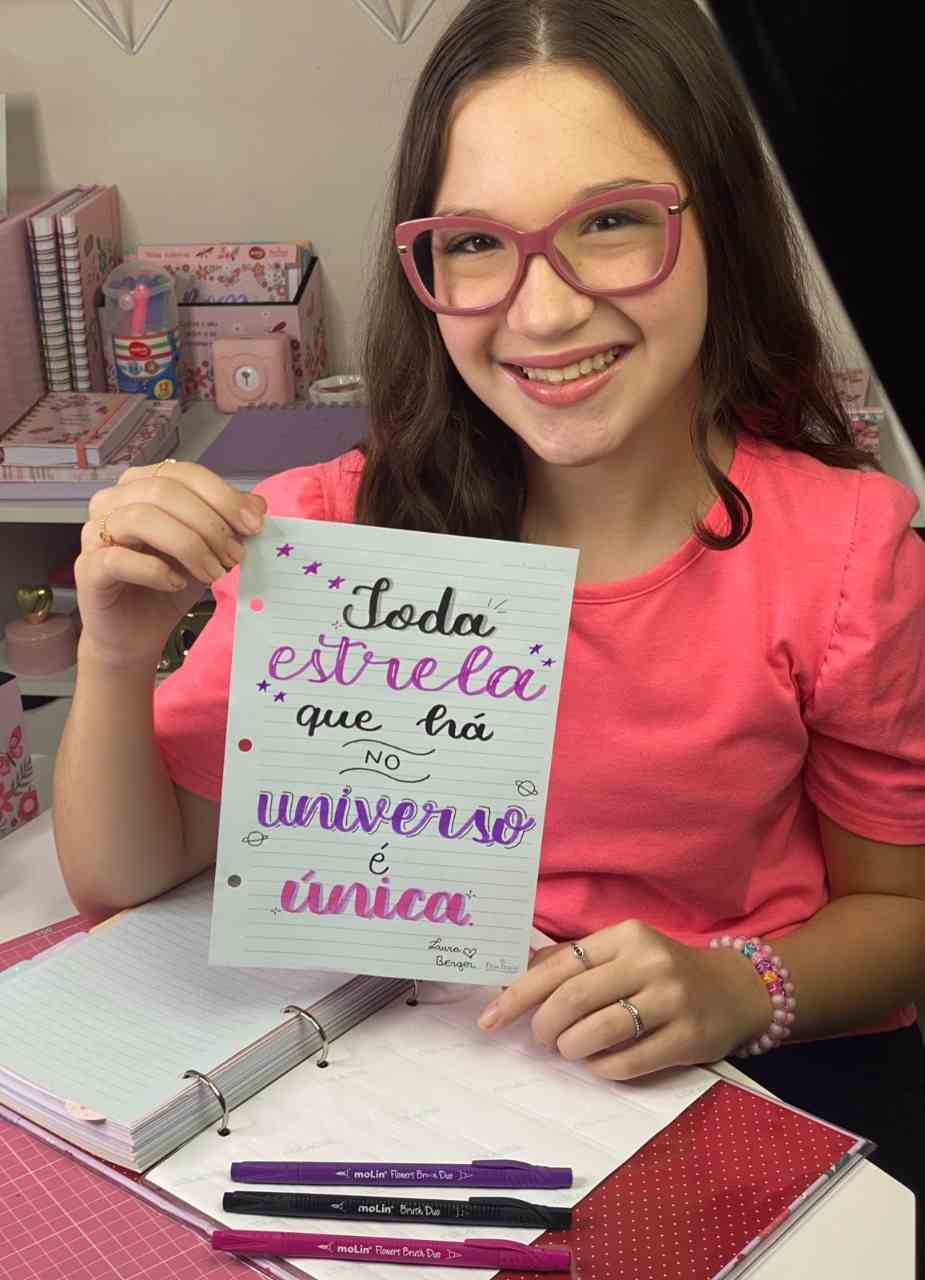 Toda
estrela
que há
NO
universo
é
única.
Laura
Berger
moLin® Flowers Brush Duo
moLin® Brush Duo
moLin® Flowers Brush Duo